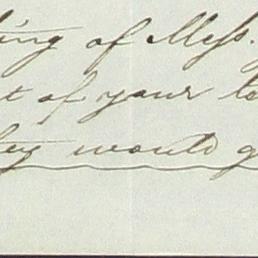 ting of Mess.
t of your te
hey would g